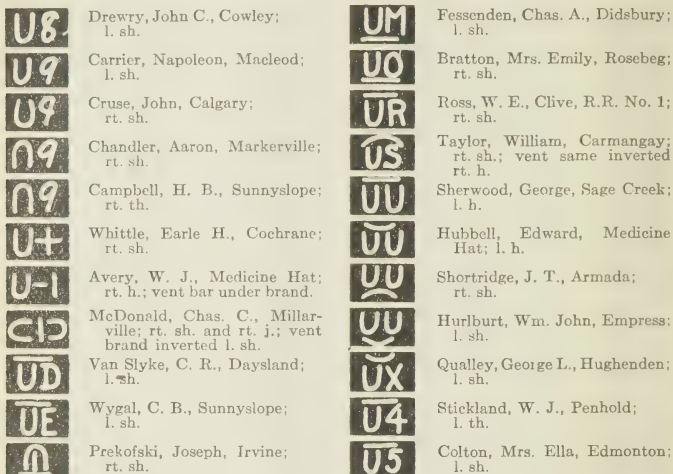 U8 Drewry, John C., Cowley;
l. sh.
U9 Carrier, Napoleon, Macleod;
l. sh.
U9 Cruse, John, Calgary;
rt. sh.
Chandler, Aaron, Markerville;
rt. sh.
Campbell, H. B., Sunnyslope;
rt. th.
U+ Whittle, Earle H., Cochrane;
rt. sh.
U-I Avery, W. J., Medicine Hat;
rt. h.; vent bar under brand.
McDonald, Chas. C., Millar-
ville; rt. sh. and rt. j.; vent
brand inverted l. sh.
UD Van Slyke, C. R., Daysland;
l. sh.
UE Wygal, C. B., Sunnyslope;
l. sh.
Prekofski, Joseph, Irvine;
rt. sh.
UM Fessenden, Chas. A., Didsbury;
l. sh.
UO Bratton, Mrs. Emily, Rosebeg;
rt. sh.
UR Ross, W. E., Clive, R.R. No. 1;
rt. sh.
US Taylor, William, Carmangay;
rt. sh.; vent same inverted
rt. h.
UU Sherwood, George, Sage Creek;
l. h.
UU Hubbell, Edward, Medicine
Hat; l. h.
UU Shortridge, J. T., Armada;
rt. sh.
UU Hurlburt, Wm. John, Empress;
l. sh.
UX Qualley, George L., Hughenden;
l. sh.
U4 Stickland, W. J., Penhold;
l. th.
U5 Colton, Mrs. Ella, Edmonton;
l. sh.